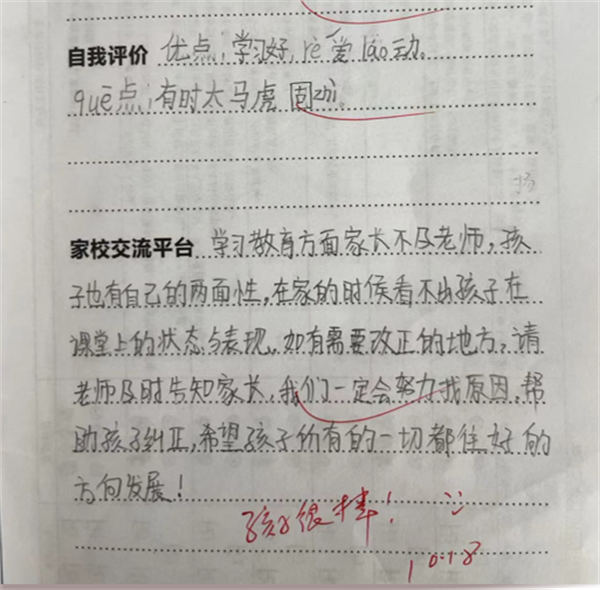 自我评价 优点；学习好，rè爱láo动。
quē点；有时太马虎 固zhí。
扬
家校交流平台 学习教育方面家长不及老师，孩
子也有自己的两面性，在家的时候看不出孩子在
课堂上的状态与表现。如有需要改正的地方？请
老师及时告知家长，我们一定会努力找原因。帮
助孩子纠正，希望孩子所有的一切都往好的
方向发展！
孩子很棒！
10.18